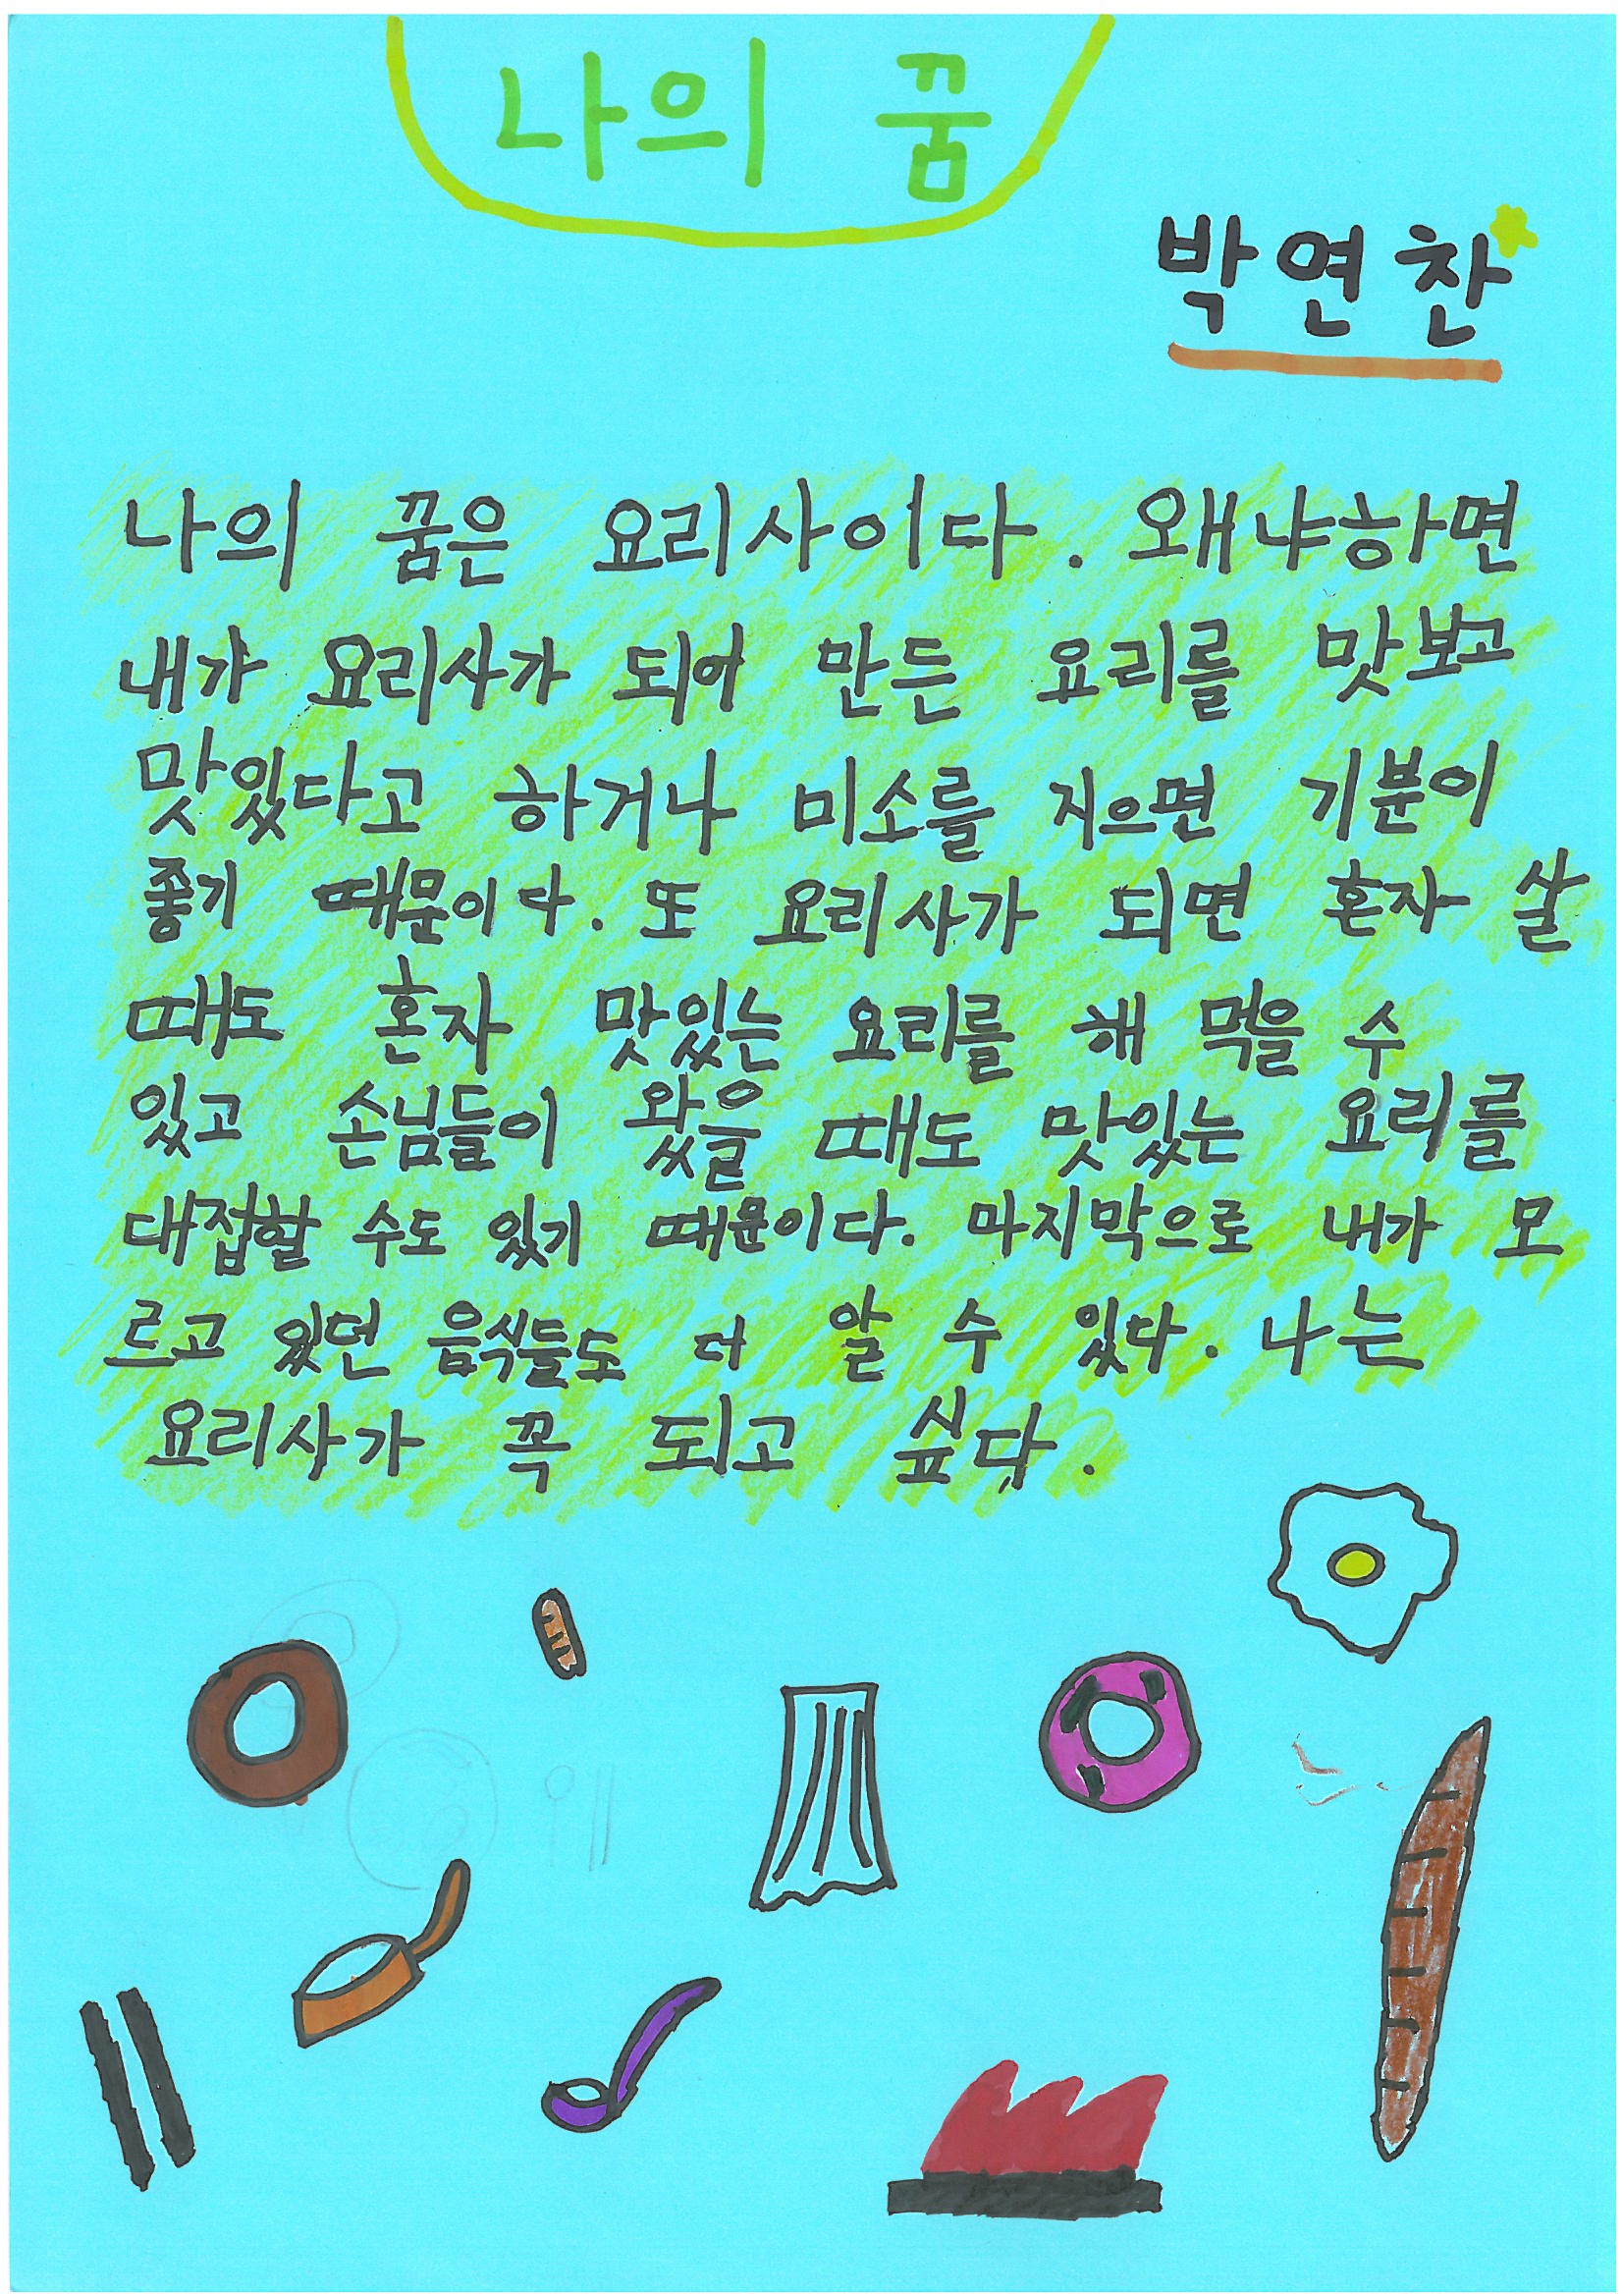 나의 꿈
박연찬
나의 꿈은 요리사이다. 왜냐하면
내가 요리사가 되어 만든 요리를 맛보고
맛있다고 하거나 미소를 지으면 기분이
좋기 때문이다. 또 요리사가 되면 혼자 살
때도 혼자 맛있는 요리를 해 먹을 수
있고 손님들이 왔을 때도 맛있는 요리를
대접할 수도 있기 때문이다. 마지막으로 내가 모
르고 있던 음식들도 더 알 수 있다. 나는
요리사가 꼭 되고 싶다.